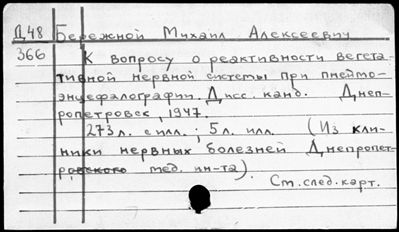 Д48 Бережной Михаил Алексеевич
366 К вопросу о реактивности вегета-
тивной нервной системы при пнеймо-
энцефалографии. Дисс. канд. Днеп-
ропетровск, 1947.
273 л. с илл.; 5 л. илл. (Из кли-
ники нервных болезней Днепропет-
ровского мед. ин-та).
См. след. карт.